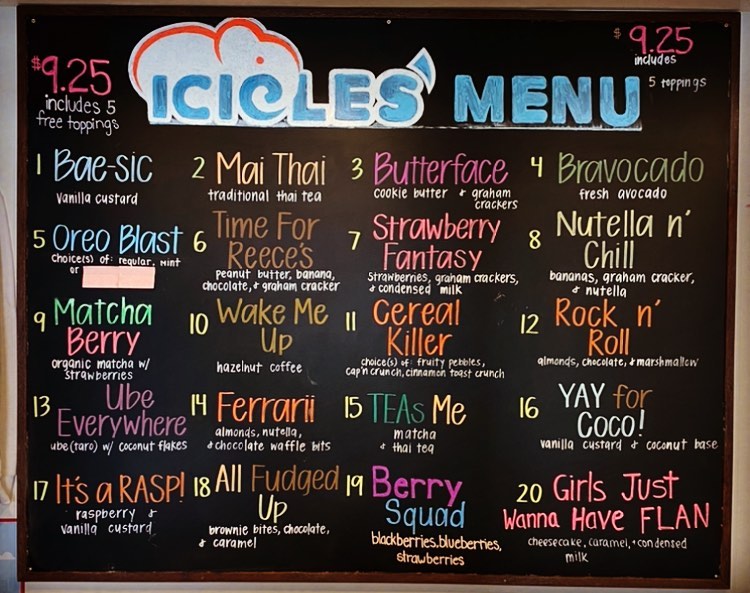 $9.25
includes 5
free toppings
ICICLES' MENU
$9.25
includes
5 toppings
1 Bae-sic
vanilla custard
2 Mai Thai
traditional thai tea
3 Butterface
cookie butter + graham
crackers
4 Bravocado
fresh avocado
5 Oreo Blast
choice(s) of: regular, mint
or
6 Time For
Reece's
peanut butter, banana,
chocolate, + graham cracker
7 Strawberry
Fantasy
strawberries, graham crackers,
+ condensed milk
8 Nutella n'
Chill
bananas, graham cracker,
+ nutella
9 Matcha
Berry
organic matcha w/
strawberries
10 Wake Me
Up
hazelnut coffee
11 Cereal
Killer
choice(s) of: fruity pebbles,
cap'n crunch, cinnamon toast crunch
12 Rock n'
Roll
almonds, chocolate, + marshmallow
13 Ube
Everywhere
ube (taro) w/ coconut flakes
14 Ferrarii
almonds, nutella,
+ chocolate waffle bits
15 TEAs Me
matcha
+ thai tea
16 YAY for
Coco!
vanilla custard + coconut base
17 It's a RASP!
raspberry +
vanilla custard
18 All Fudged
Up
brownie bites, chocolate,
+ caramel
19 Berry
Squad
blackberries, blueberries,
strawberries
20 Girls Just
Wanna Have FLAN
cheesecake, caramel, + condensed
milk